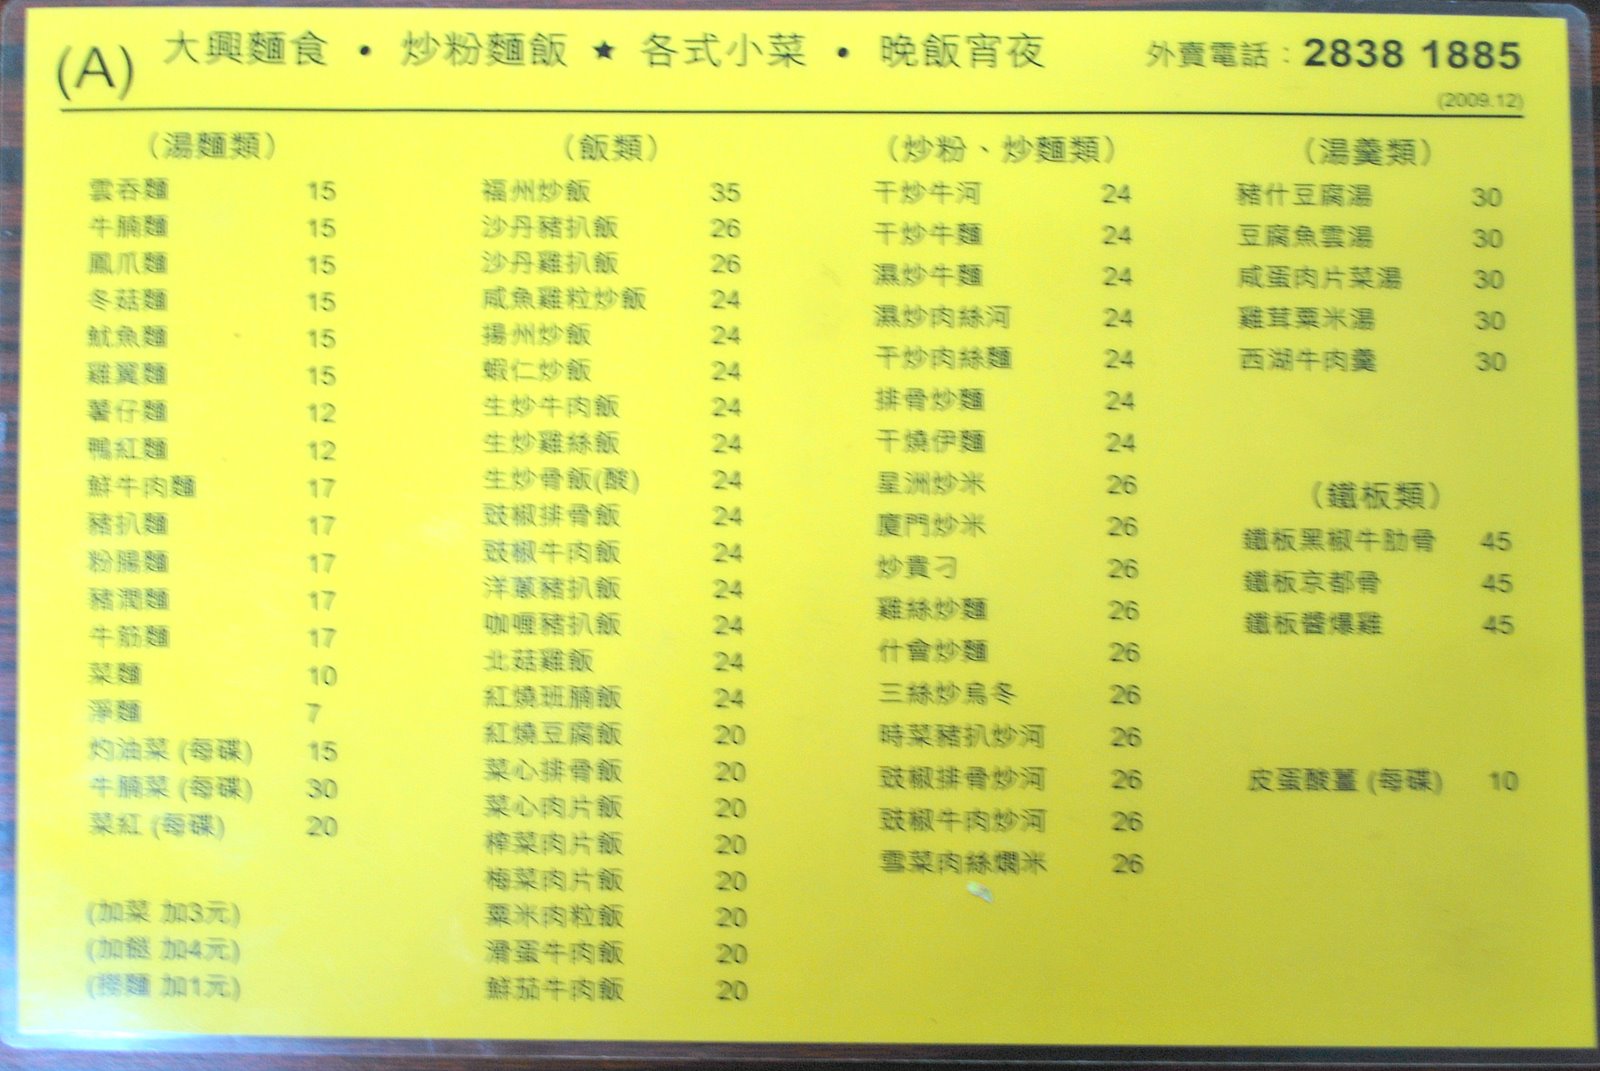 (A) 大興麵食 • 炒粉麵飯 ★ 各式小菜 • 晚飯宵夜 外賣電話：2838 1885
(2009.12)
（湯麵類）
雲吞麵 15
牛腩麵 15
鳳爪麵 15
冬菇麵 15
魷魚麵 15
雞翼麵 15
薯仔麵 12
鴨紅麵 12
鮮牛肉麵 17
豬扒麵 17
粉腸麵 17
豬潤麵 17
牛筋麵 17
菜麵 10
淨麵 7
灼油菜 (每碟) 15
牛腩菜 (每碟) 30
菜紅 (每碟) 20
(加菜 加3元)
(加餸 加4元)
(撈麵 加1元)
（飯類）
福州炒飯 35
沙丹豬扒飯 26
沙丹雞扒飯 26
咸魚雞粒炒飯 24
揚州炒飯 24
蝦仁炒飯 24
生炒牛肉飯 24
生炒雞絲飯 24
生炒骨飯(酸) 24
豉椒排骨飯 24
豉椒牛肉飯 24
洋蔥豬扒飯 24
咖喱豬扒飯 24
北菇雞飯 24
紅燒班腩飯 24
紅燒豆腐飯 20
菜心排骨飯 20
菜心肉片飯 20
榨菜肉片飯 20
梅菜肉片飯 20
粟米肉粒飯 20
滑蛋牛肉飯 20
鮮茄牛肉飯 20
（炒粉、炒麵類）
干炒牛河 24
干炒牛麵 24
濕炒牛麵 24
濕炒肉絲河 24
干炒肉絲麵 24
排骨炒麵 24
干燒伊麵 24
星洲炒米 26
廈門炒米 26
炒貴刁 26
雞絲炒麵 26
什會炒麵 26
三絲炒烏冬 26
時菜豬扒炒河 26
豉椒排骨炒河 26
豉椒牛肉炒河 26
雪菜肉絲燜米 26
（湯羹類）
豬什豆腐湯 30
豆腐魚雲湯 30
咸蛋肉片菜湯 30
雞茸粟米湯 30
西湖牛肉羹 30
（鐵板類）
鐵板黑椒牛肋骨 45
鐵板京都骨 45
鐵板醬爆雞 45
皮蛋酸薑 (每碟) 10